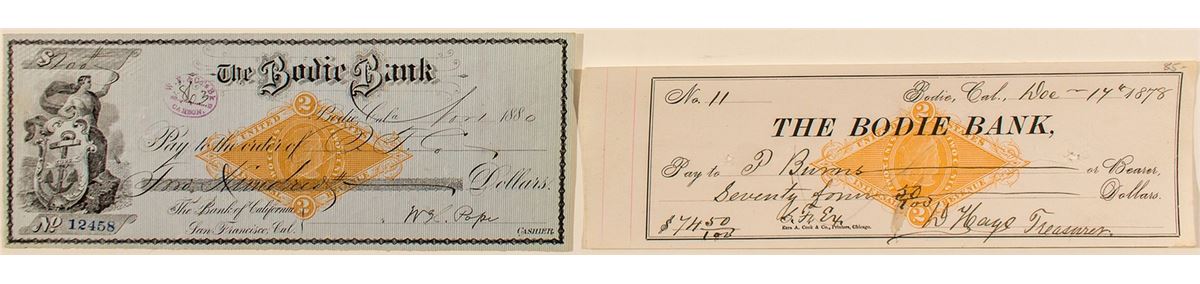 $200
The Bodie Bank
Bodie, Cala. Nov 1 1880
Pay to the order of
Two Hundred Dollars.
The Bank of California
San Francisco, Cal.
Nº 12458
W. H. Pope
CASHIER.
CARSON.
2
UNITED STATES
INTERNAL REVENUE
2
85-
No. 11 Bodie, Cal., Dec 17th 1878
THE BODIE BANK,
Pay to P Burns or Bearer,
Seventy four 50/100 Dollars.
$74 50/100
Ezra A. Cook & Co., Printers, Chicago.
D Hays Treasurer
UNITED STATES
INTERNAL REVENUE